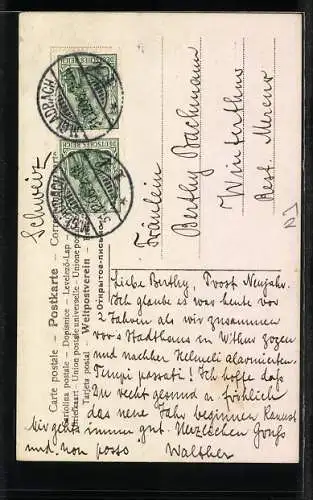 Carte postale – Postkarte – Correspon
Cartolina postale – Dopisnice – Levelező-Lap
Briefkaart – Union postale universelle – Unione po
Tarjeta postal – Weltpostverein –
Открытое письмо
DEUTSCHES REICH
M.GLADBACH
M.GLADBACH
Schweiz
Fräulein
Berthy Bachmann
Winterthur
Rest. Mercur
Liebe Berthy, Prost Neujahr.
Ich glaube es war heute vor
2 Jahren als wir zusammen
vor's Stadthaus in W'thur zogen
und nachher Helmeli alarmierten.
Tempi passati! Ich hoffe dass
Du recht gesund u fröhlich
das neue Jahr beginnen kannst
Mir gehts immer gut. Herzlichen Gruss
und, non posso Walther